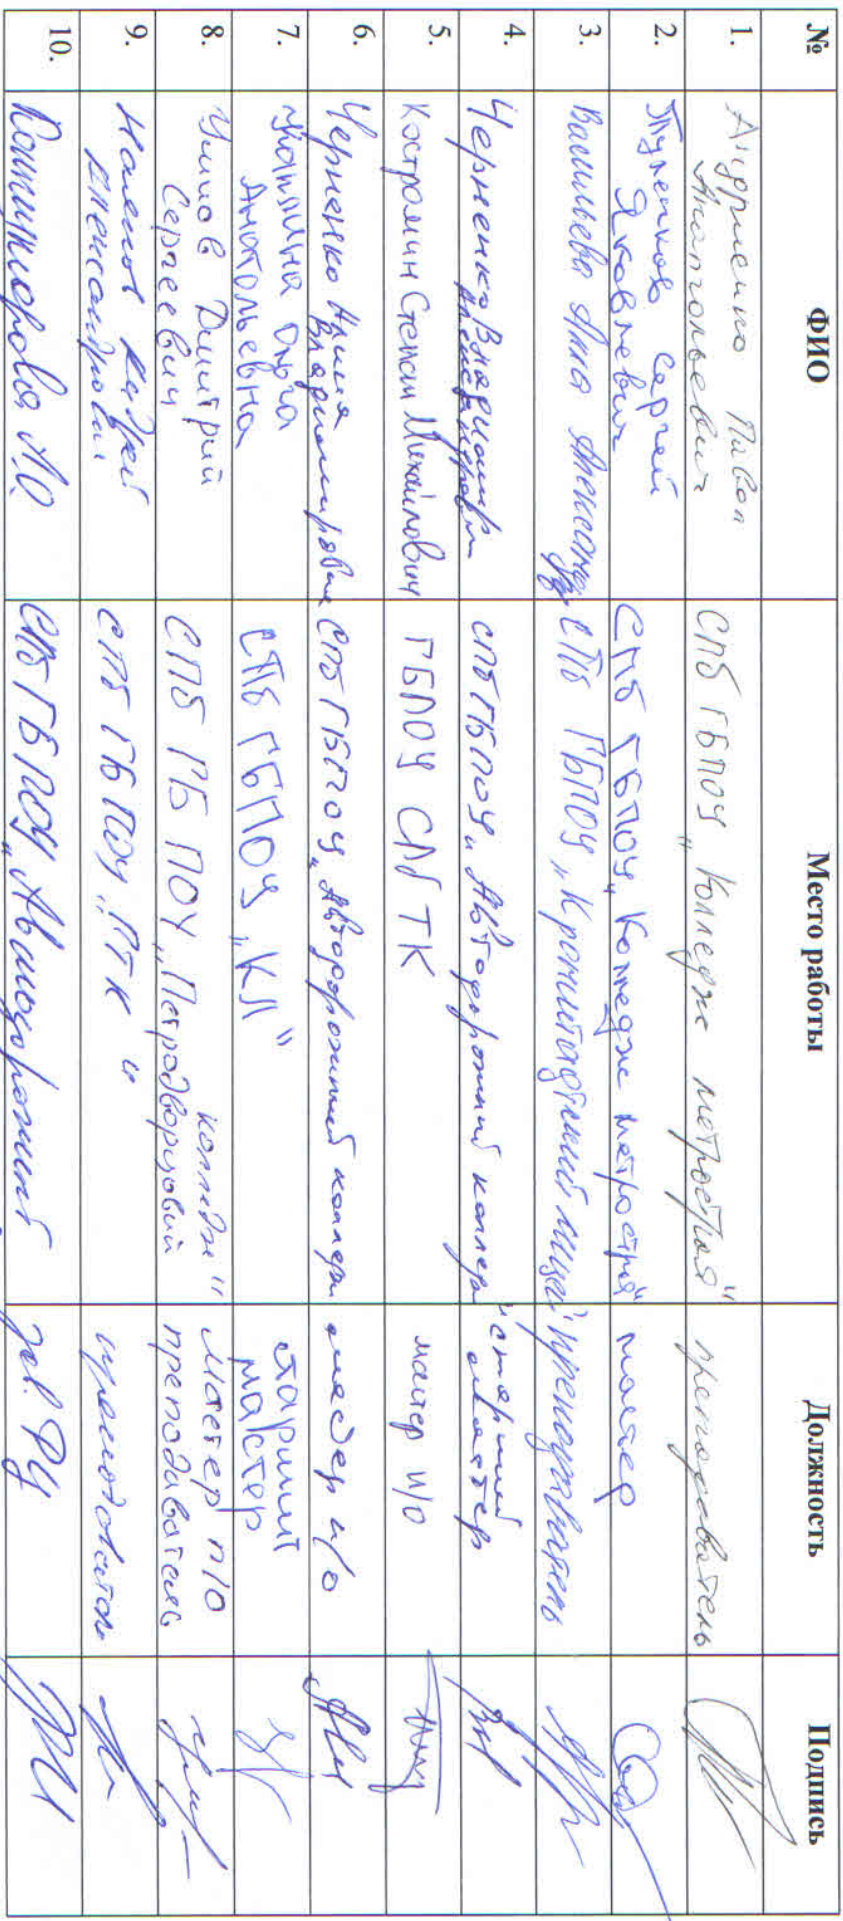 № ФИО Место работы Должность Подпись
1. Андриенко Павел
Анатольевич
СПб ГБПОУ "Колледж метростроя"
преподаватель
2. Сергей
Яковлевич
СПб ГБПОУ "Колледж метростроя"
мастер
3. Васильева Анна
СПб ГБПОУ "Кронштадтский лицей"
преподаватель
4. Черненко Владимир
Александрович
СПб ГБПОУ "Автодорожный коллед
старший
мастер
5. Костромин Степан Михайлович
ГБПОУ СПБ ТК
мастер п/о
6. Черненко
Владимировна
СПб ГБПОУ "Автодорожный колледж
мастер п/о
7. Ольга
Анатольевна
СПб ГБПОУ "КЛ"
старший
мастер
8. Дмитрий
Сергеевич
СПб ГБ ПОУ "Петродворцовый
колледж"
Мастер п/о
преподаватель
9. Андрей
Александрович
СПб ГБ ПОУ "ПТК"
преподаватель
10.
СПб ГБПОУ "Автодорожный
зав. РЦ